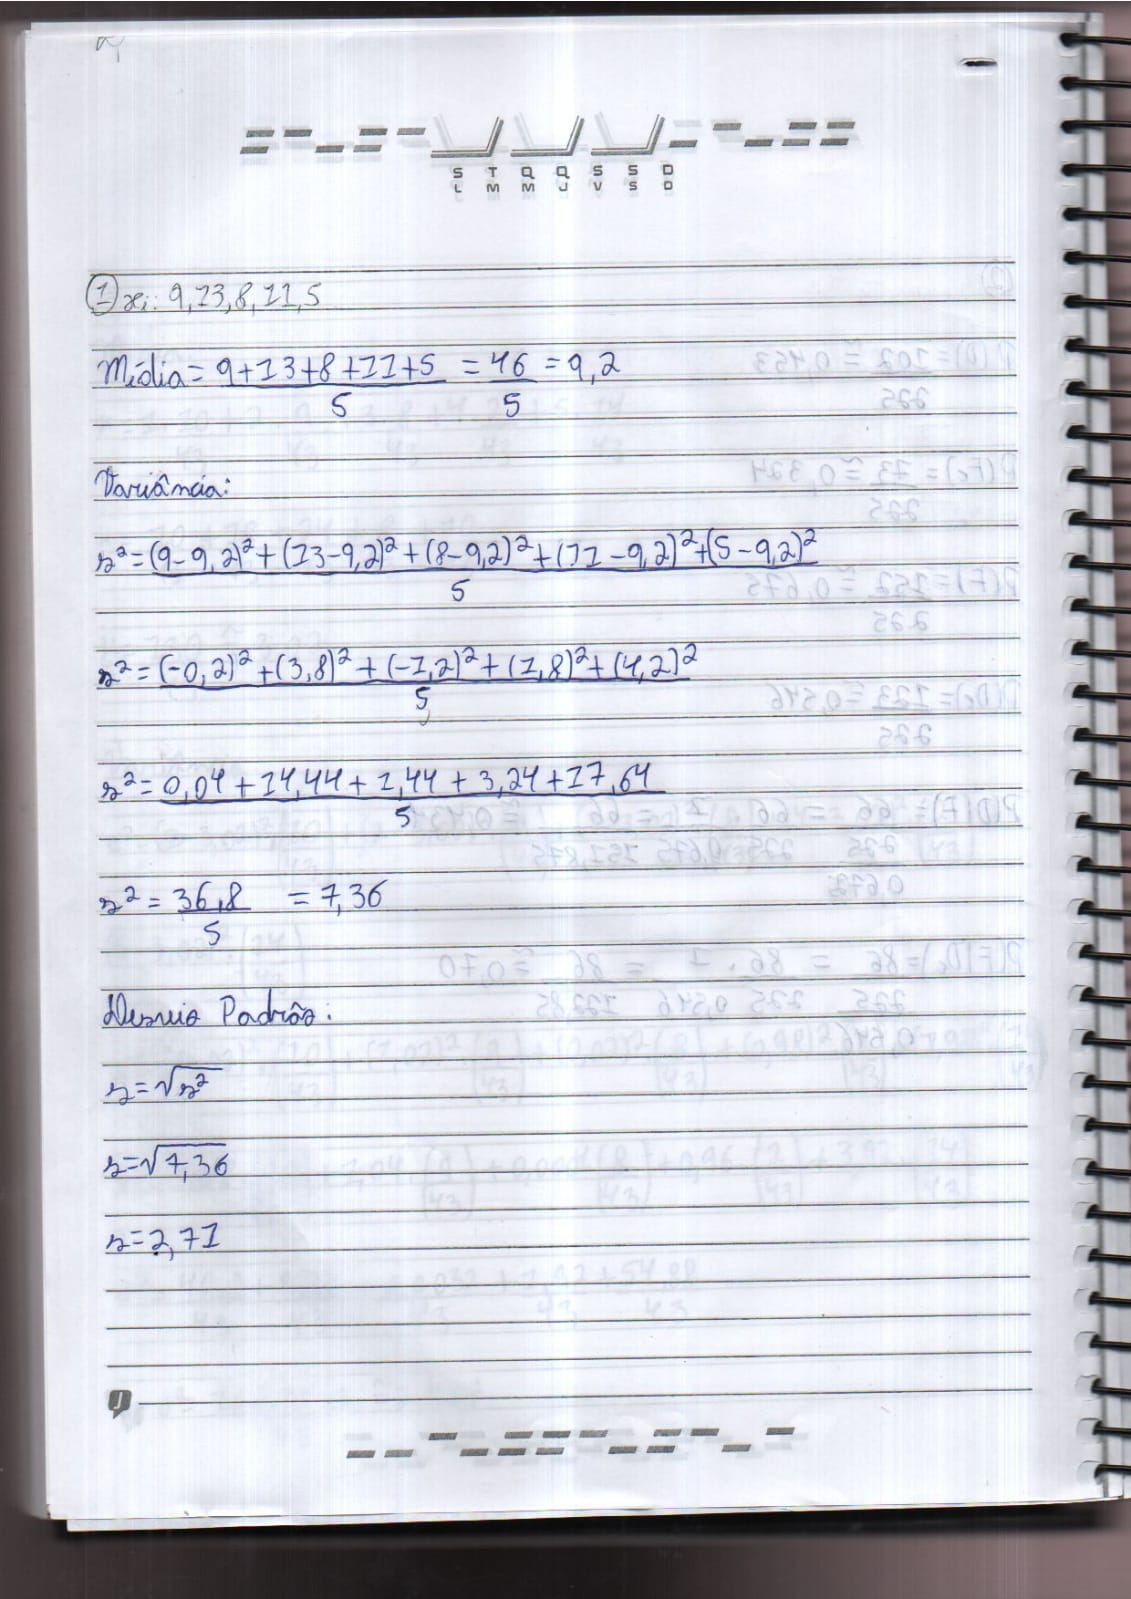 S T Q Q S S D
L M M J V S D
① xi: 9,13,8,11,5
Média = 9+13+8+11+5 = 46 = 9,2
5 5
Variância:
s² = (9-9,2)² + (13-9,2)² + (8-9,2)² + (11-9,2)² + (5-9,2)²
5
s² = (-0,2)² + (3,8)² + (-1,2)² + (1,8)² + (4,2)²
5
s² = 0,04 + 14,44 + 1,44 + 3,24 + 17,64
5
s² = 36,8 = 7,36
5
Desvio Padrão:
s = √s²
s = √7,36
s = 2,71